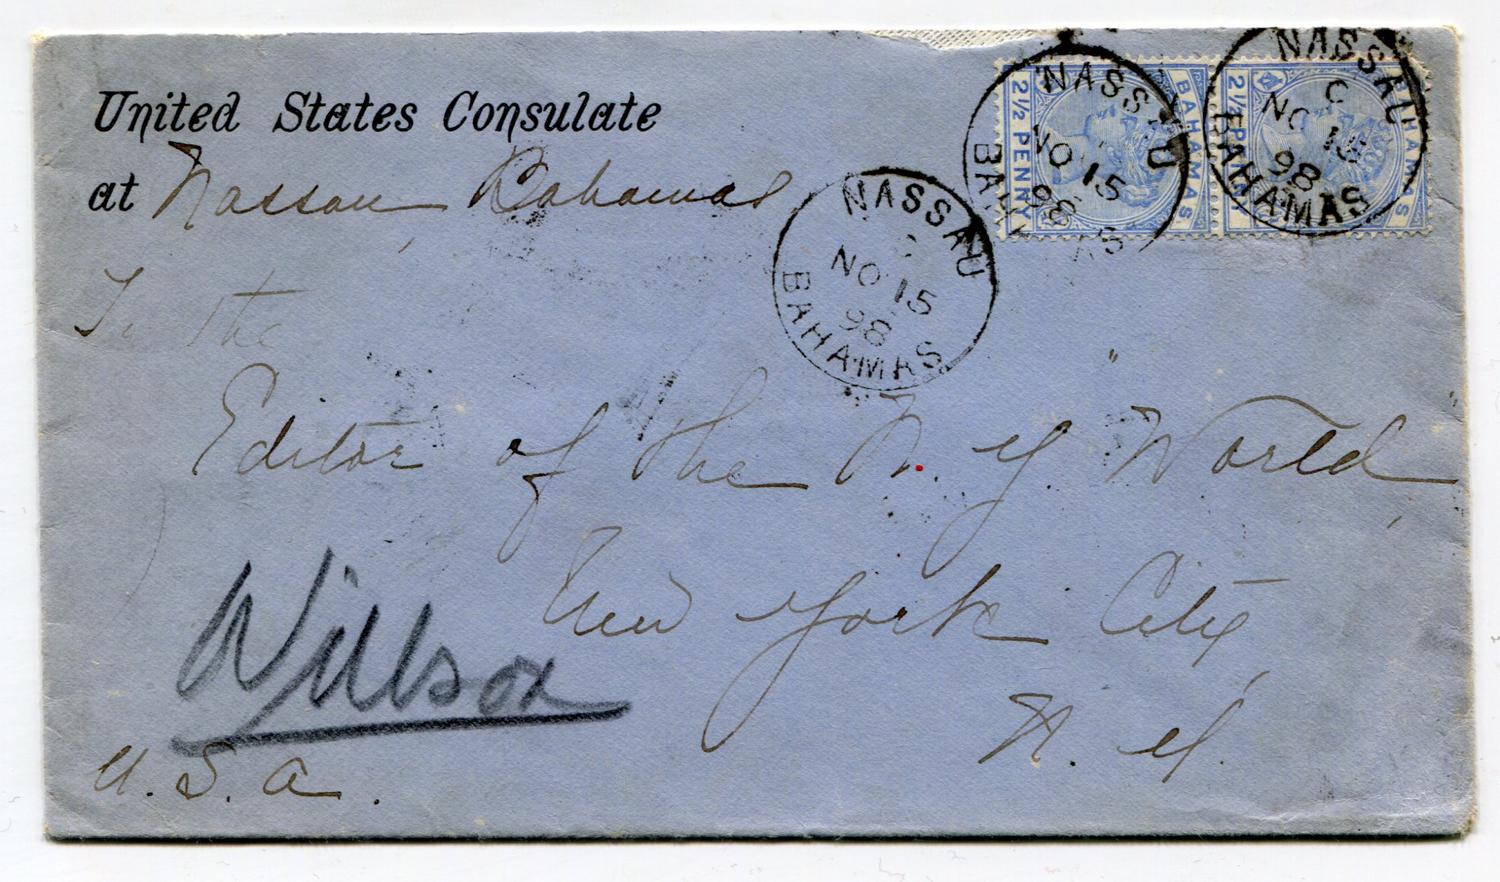 United States Consulate
at Nassau Bahamas
To the
Editor of the N. Y. "World"
New York City,
N. Y.
U. S. A.
Willsox
NASSAU
C
NO 15
98
BAHAMAS
NASSAU
NO 15
98
BAHAMAS
NASSAU
C
NO 15
98
BAHAMAS
BAHAMAS
2½ PENNY
BAHAMAS
2½ PE